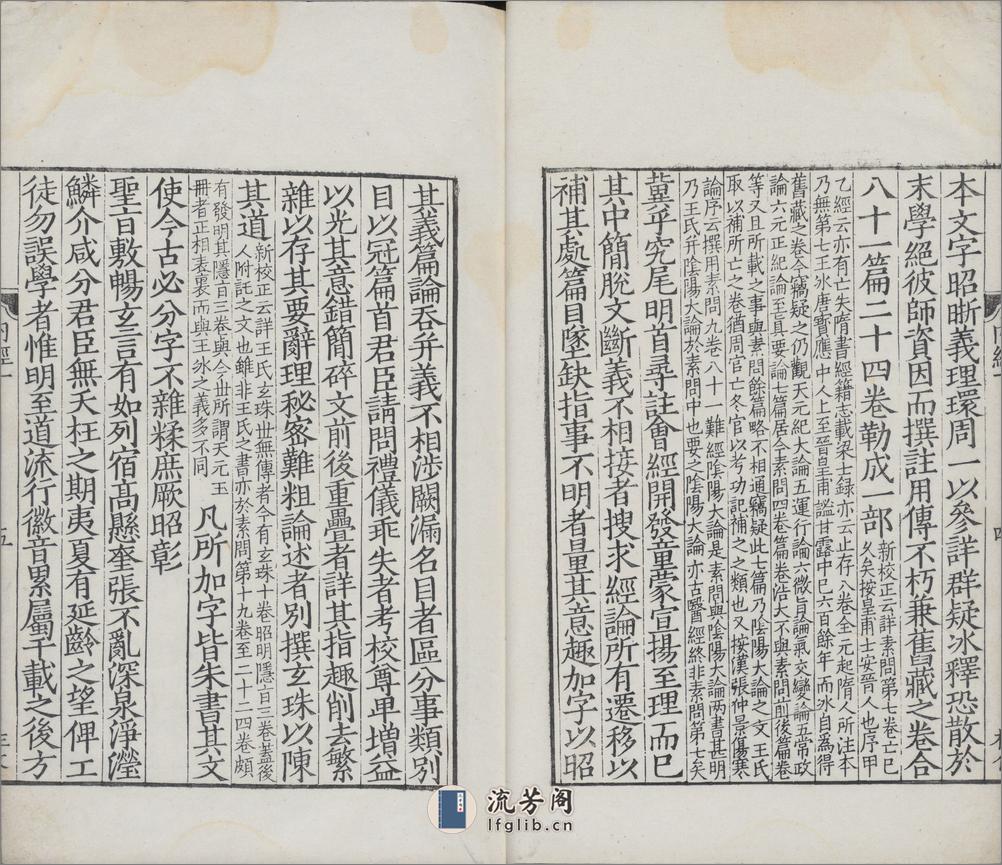 本文字昭晰義理環周一以參詳群疑冰釋恐散於
末學絕彼師資因而撰註用傳不朽兼舊藏之卷合
八十一篇二十四卷勒成一部新校正云詳素問第七卷亡已
久矣按皇甫士安晉人也序甲
乙經云亦有亡失隋書經籍志載梁七錄亦云止存八卷全元起隋人所注本
乃無第七王冰唐寶應中人上至晉皇甫謐甘露中已六百餘年而冰自為得
舊藏之卷今竊疑之仍觀天元紀大論五運行論六微旨論氣交變論五常政
論六元正紀論至真要論七篇居今素問四卷篇卷浩大不與素問前後篇卷
等又且所載之事與素問餘篇略不相通竊疑此七篇乃陰陽大論之文王氏
取以補所亡之卷猶周官亡冬官以考功記補之之類也又按漢張仲景傷寒
論序云撰用素問九卷八十一難經陰陽大論是素問與陰陽大論兩書甚明
乃王氏并陰陽大論於素問中也要之陰陽大論亦古醫經終非素問第七矣
冀乎究尾明首尋註會經開發童蒙宣揚至理而已
其中簡脫文斷義不相接者搜求經論所有遷移以
補其處篇目墜缺指事不明者量其意趣加字以昭
其義篇論吞并義不相涉闕漏名目者區分事類別
目以冠篇首君臣請問禮儀乖失者考校尊卑增益
以光其意錯簡碎文前後重疊者詳其指趣削去繁
雜以存其要辭理秘密難粗論述者別撰玄珠以陳
其道新校正云詳王氏玄珠世無傳者今有玄珠十卷昭明隱旨三卷蓋後
人附託之文也雖非王氏之書亦於素問第十九卷至二十二四卷頗
有發明其隱旨三卷與今世所謂天元玉
冊者正相表裏而與王冰之義多不同凡所加字皆朱書其文
使今古必分字不雜糅庶厥昭彰
聖旨敷暢玄言有如列宿高懸奎張不亂深泉淨瀅
鱗介咸分君臣無夭枉之期夷夏有延齡之望俾工
徒勿誤學者惟明至道流行徽音累屬千載之後方
内經一
五
四
流芳阁
lfglib.cn